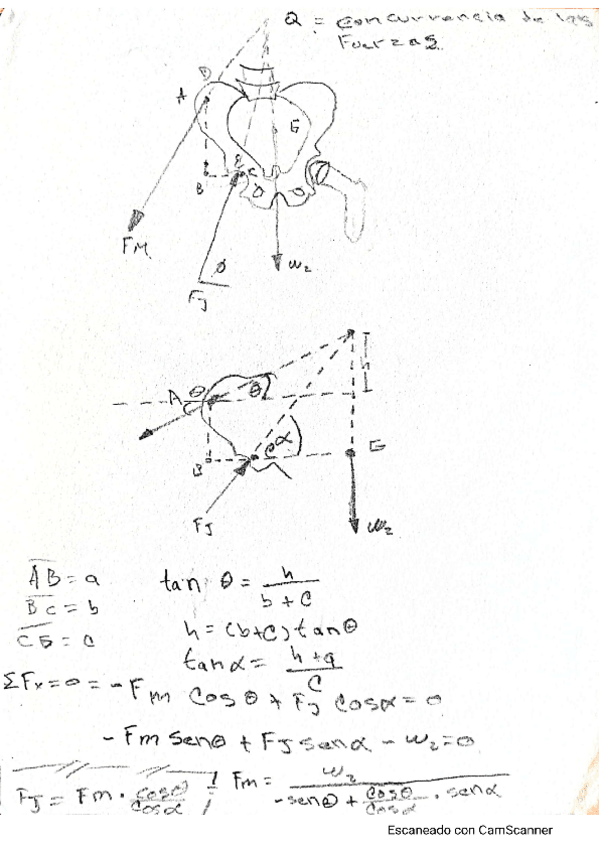 Q = concurrencia de las
Fuerzas.
D
A
G
E
C
B
FM
W2
θ
FJ
h
A
θ
θ
α
B
G
FJ
W2
AB = a
BC = b
CG = c
tan θ = h / b + c
h = (b+c) tan θ
tan α = h + a / c
ΣFx = 0 = -Fm cos θ + FJ cos α = 0
- Fm sen θ + FJ sen α - W2 = 0
FJ = Fm · cos θ / cos α
Fm = W2 / -sen θ + cos θ / cos α · sen α
Escaneado con CamScanner